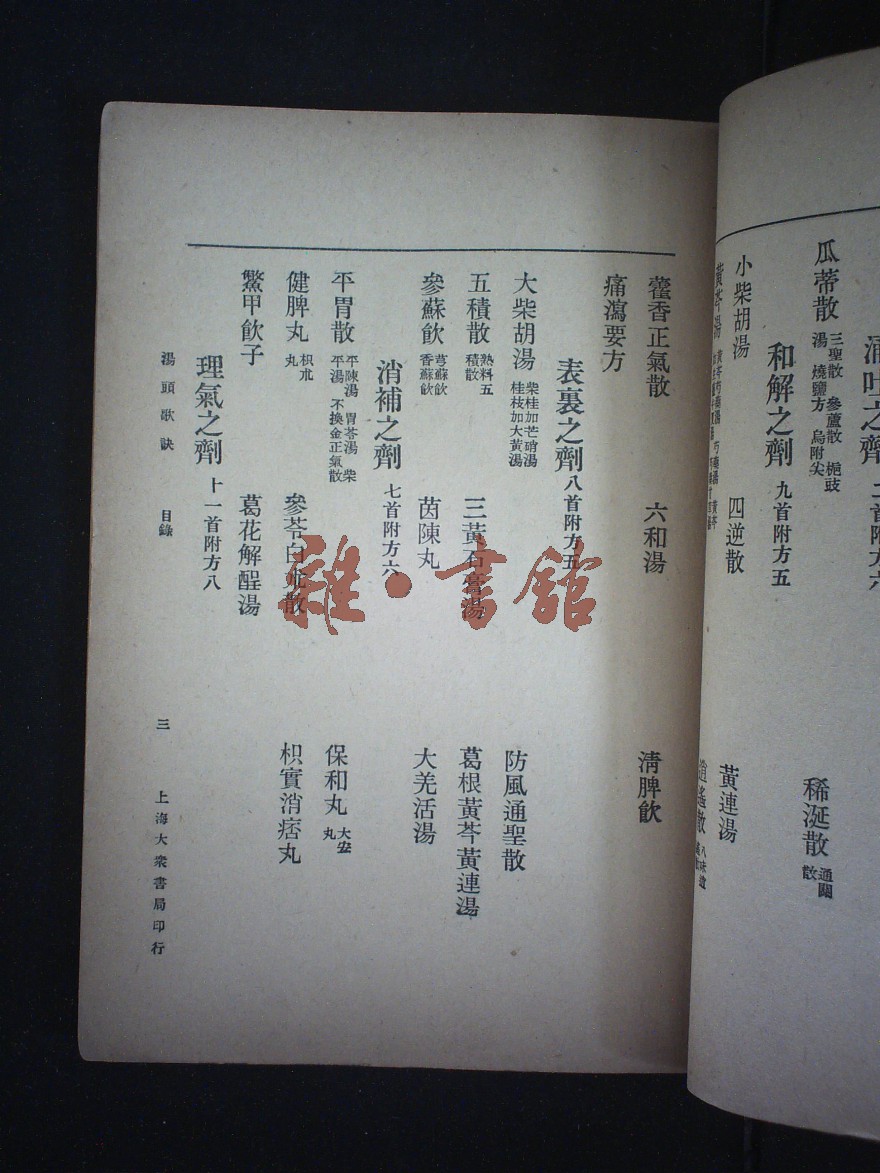 涌吐之劑 二首附方六
瓜蒂散 三聖散 參蘆散 梔豉湯 燒鹽方 烏附尖
稀涎散 通關散
和解之劑 九首附方五
小柴胡湯
四逆散
黃連湯
黃芩湯
逍遙散
藿香正氣散
六和湯
清脾飲
痛瀉要方
表裏之劑 八首附方五
大柴胡湯 柴桂加芒硝湯 桂枝加大黃湯
防風通聖散
五積散 熟料五積散
三黃石膏湯
葛根黃芩黃連湯
參蘇飲 芎蘇飲 香蘇飲
茵陳丸
大羌活湯
消補之劑 七首附方六
平胃散 平陳湯 胃苓湯 柴平湯 不換金正氣散
保和丸 大安丸
健脾丸 枳朮丸
參苓白朮散
枳實消痞丸
鱉甲飲子
葛花解酲湯
理氣之劑 十一首附方八
湯頭歌訣 目錄
三 上海大衆書局印行
雜·書館